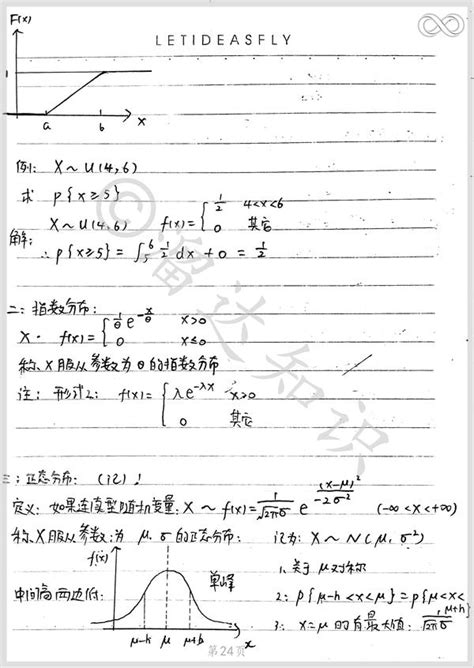 F(x)
LETIDEASFLY
1
a b x
例: X～U(4,6)
求 P{X≥5}
X～U(4,6) f(x)={ 1/2 4<x<6
0 其它
解: ∴P{X≥5}=∫₅⁶ 1/2 dx + 0 = 1/2
二: 指数分布:
X· f(x)={ 1/θ e^(-x/θ) x>0
0 x≤0
称X服从参数为θ的指数分布
注: 形式2: f(x)={ λe^(-λx) x>0
0 其它
三: 正态分布: (记)!
定义: 如果连续型随机变量: X～f(x)= 1/(√2π σ) e^((x-μ)²/-2σ²) (-∞<x<+∞)
称X服从参数为μ.σ的正态分布: 记为: X～N(μ,σ²)
f(x)
1. 关于μ对称
中间高两边低: 单峰 2: P{μ-h<x<μ}=P{μ<x<μ+h}
μ-h μ μ+h x 3: x=μ时有最大值: 1/(√2π σ)
第24页
©溜达知识